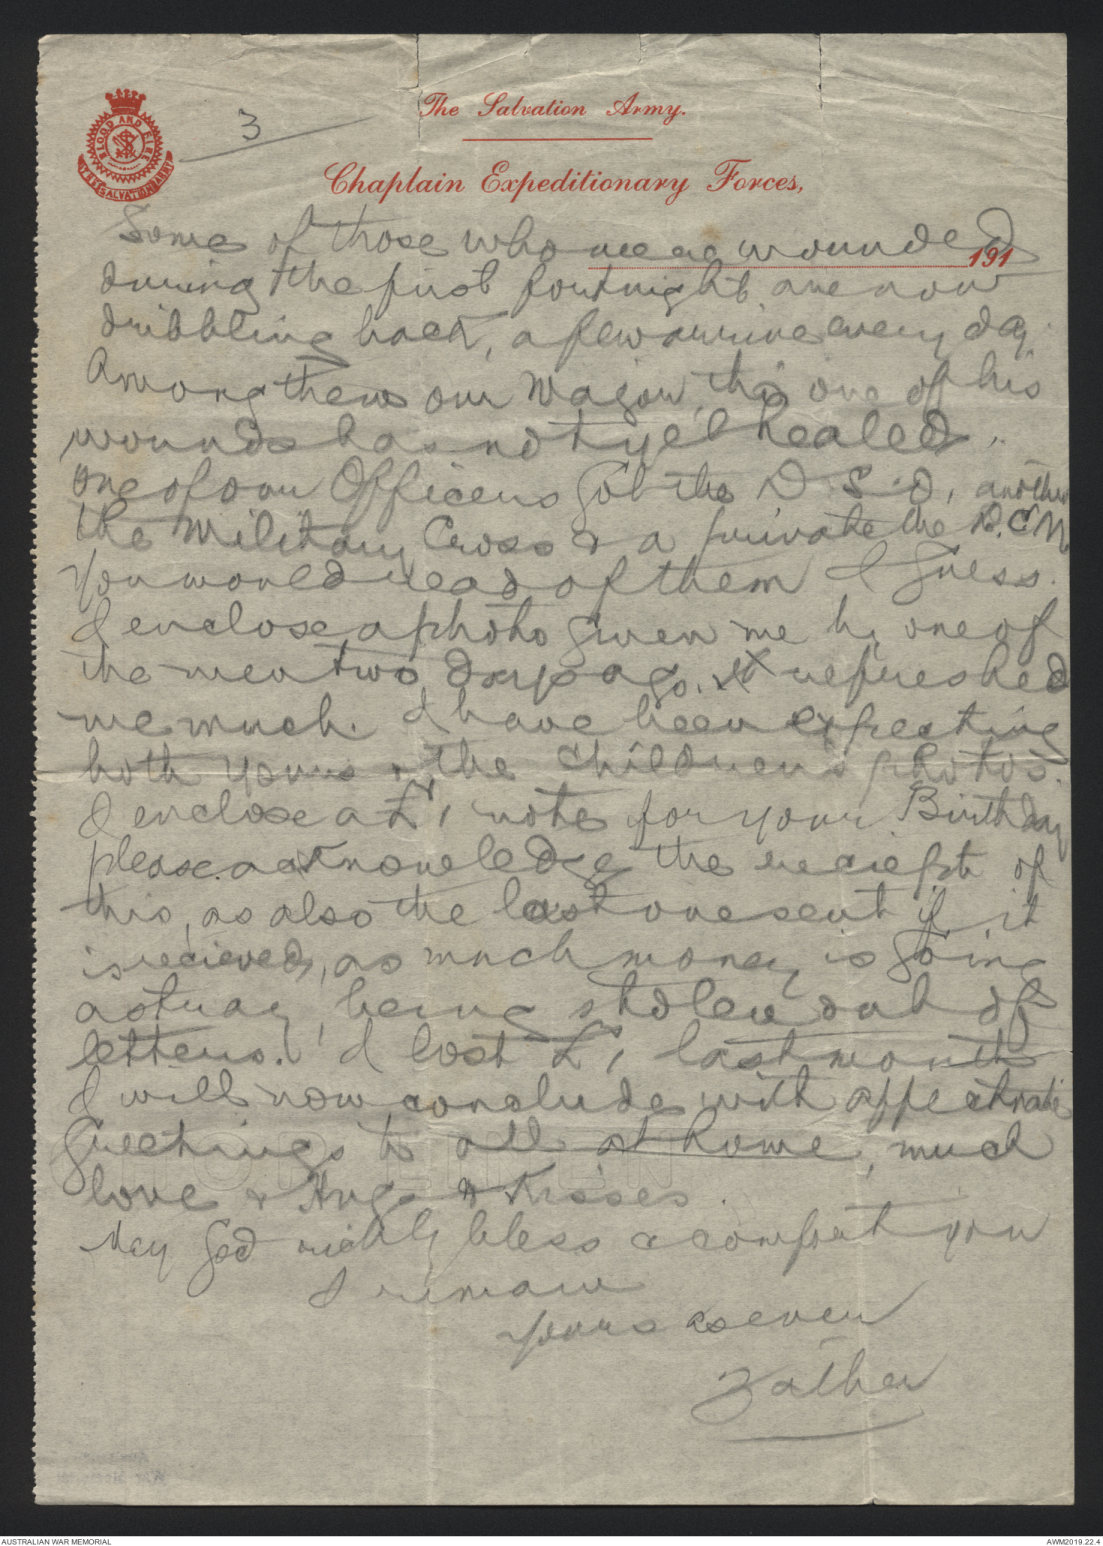 3
The Salvation Army.
BLOOD AND FIRE
THE SALVATION ARMY
Chaplain Expeditionary Forces,
191
Some of those who were wounded
during the first fortnight are now
dribbling back, a few arrive every day.
Among them our Major, tho one of his
wounds has not yet healed.
One of our Officers got the D.S.O, another
the Military Cross & a private the D.C.M
You would read of them I guess.
I enclose a photo given me by one of
the men two days ago. It refreshed
me much. I have been expecting
both yours & the children's photos.
I enclose a £1 note for your Birthday
please acknowledge the reciept of
this, as also the last one sent if it
is recieved, as much money is going
astray, being stolen out of
letters. I lost £1 last month
I will now conclude with affectnate
Greetings to all at home, much
love & Hugs & Kisses.
May God richly bless & comfort you
I remain
Yours as ever
Father
AUSTRALIAN WAR MEMORIAL
AWM2019.22.4